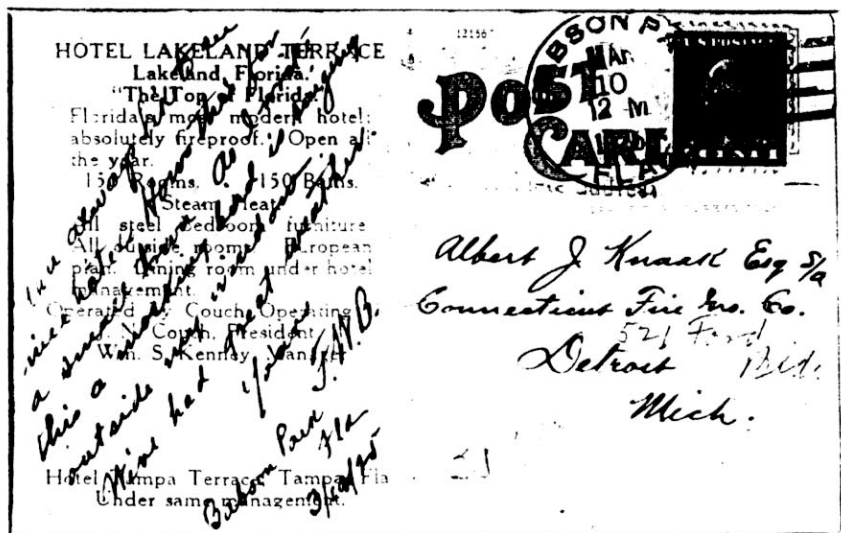 HOTEL LAKELAND TERRACE
Lakeland, Florida.
"The Top of Florida."
Florida's most modern hotel;
absolutely fireproof. Open all
the year.
150 Rooms. 150 Baths.
Steam Heat
All steel bedroom furniture
All outside rooms. European
plan. Dining room under hotel
management.
Operated by Couch Operating
Couch, President
Wm. S. Kenney, Manager
Hotel Tampa Terrace, Tampa, Fla
Under same management.
nice hotel
a small town
this a mocking bird is singing
outside my window
We've had great weather.
Yours F.W.B.
Babson Park
Fla
3/10/25
12156
POST CARD
BABSON P
MAR
10
12 M
FLA
Albert J Knaak Esq S/a
Connecticut Fire Ins. Co.
521 Ford
Detroit Bld.
Mich.